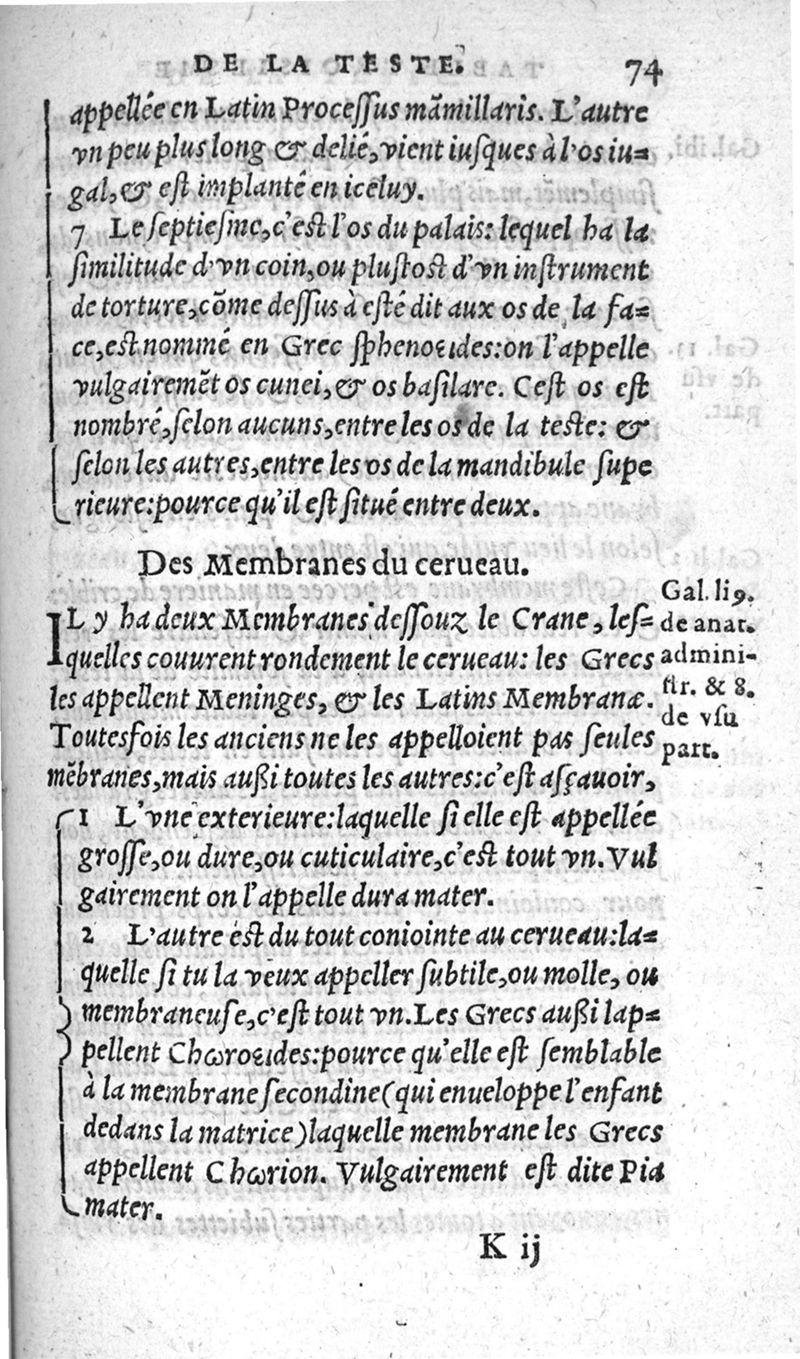 DE LA TESTE. 74
appellée en Latin Processus mãmillaris. L'autre
vn peu plus long & delié, vient iusques à l'os iu=
gal, & est implanté en iceluy.
7 Le septiesme, c'est l'os du palais: lequel ha la
similitude d'vn coin, ou plustost d'vn instrument
de torture, cõme dessus à esté dit aux os de la fa=
ce, est nommé en Grec sphenoeides: on l'appelle
vulgairemẽt os cunei, & os basilare. Cest os est
nombré, selon aucuns, entre les os de la teste: &
selon les autres, entre les os de la mandibule supe
rieure: pource qu'il est situé entre deux.
Des Membranes du cerueau.
IL y ha deux Membranes dessouz le Crane, les=
quelles couurent rondement le cerueau: les Grecs
les appellent Meninges, & les Latins Membranæ.
Toutesfois les anciens ne les appelloient pas seules
mẽbranes, mais außi toutes les autres: c'est asçauoir,
Gal. li9.
de anat.
admini-
str. & 8.
de vsu
part.
1 L'vne exterieure: laquelle si elle est appellée
grosse, ou dure, ou cuticulaire, c'est tout vn. Vul
gairement on l'appelle dura mater.
2 L'autre est du tout coniointe au cerueau: la=
quelle si tu la veux appeller subtile, ou molle, ou
membraneuse, c'est tout vn. Les Grecs außi lap=
pellent Chωroeides: pource qu'elle est semblable
à la membrane secondine (qui enueloppe l'enfant
dedans la matrice) laquelle membrane les Grecs
appellent Chωrion. Vulgairement est dite Pia
mater.
K ij